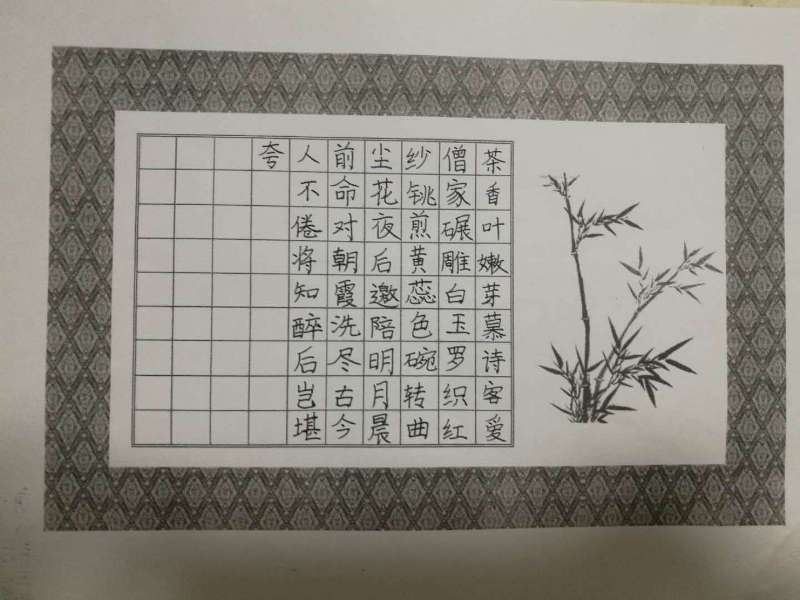 茶香叶嫩芽慕诗客爱
僧家碾雕白玉罗织红
纱铫煎黄蕊色碗转曲
尘花夜后邀陪明月晨
前命对朝霞洗尽古今
人不倦将知醉后岂堪
夸